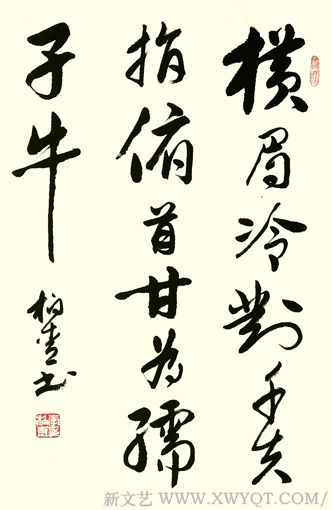 横眉冷對千夫
指俯首甘为孺
子牛
新文艺 WWW.XWYQT.COM/